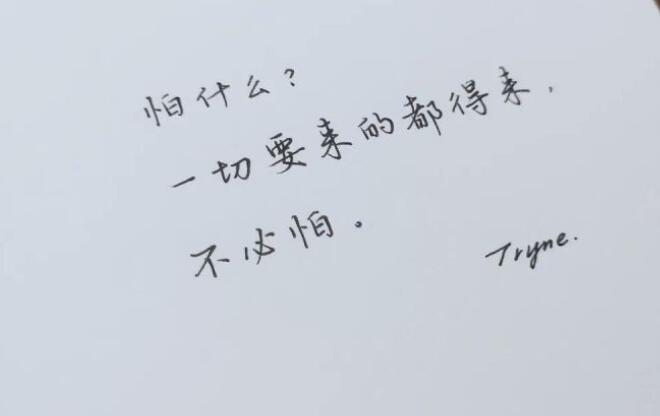 怕什么?
一切要来的都得来,
不必怕。
Tryne.